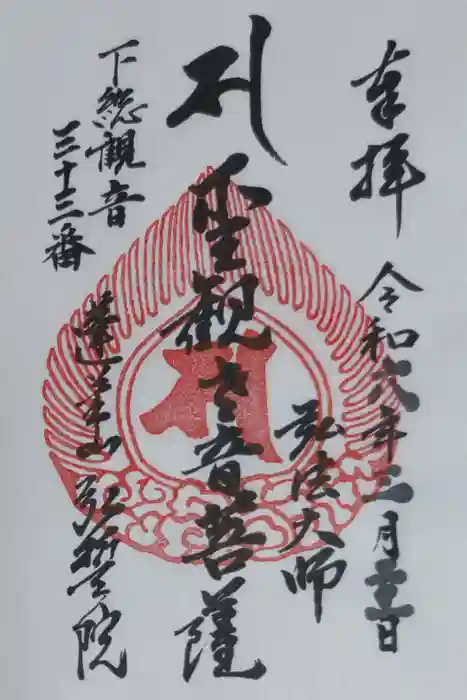 奉拝
令和六年三月二十三日
弘法大師
聖観世音菩薩
下総観音
三十三番
蓮華山 弘誓院